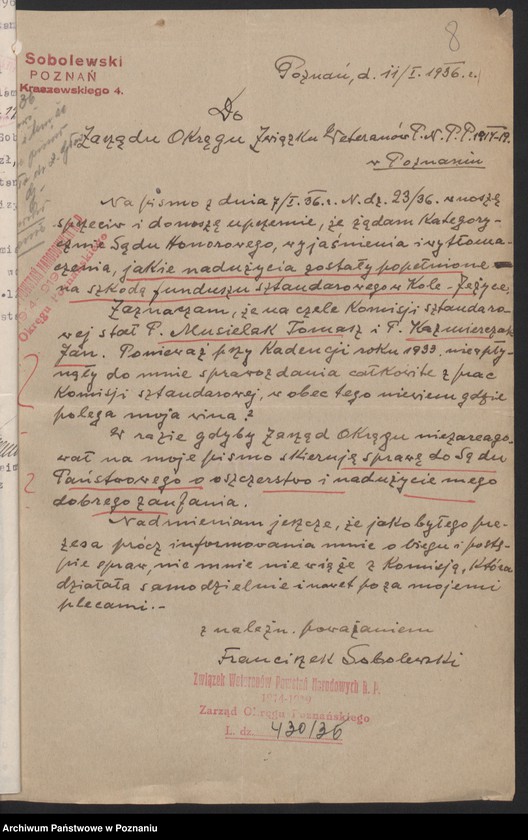 8
Sobolewski
POZNAŃ
Kraszewskiego 4.
Poznań, d. 11/I. 1936. r.
Do
Zarządu Okręgu Związku Weteranów P. N. P. P. 1914-19.
w Poznaniu
Na pismo z dnia 7/I. 36. r. N. dz. 23/36. wnoszę
sprzeciw i donoszę uprzejmie, że żądam kategory-
cznie Sądu Honorowego, wyjaśnienia i wytłoma-
czenia, jakie nadużycia zostały popełnione
na szkodę funduszu sztandarowego w Kole - Jeżyce.
Zaznaczam, że na czele Komisji sztandaro-
wej stał P. Musielak Tomasz i P. Kaźmierczak
Jan. Ponieważ przy Kadencji roku 1933. nie wpły-
nęły do mnie sprawozdania całkowite z prac
Komisji sztandarowej, wobec tego nie wiem gdzie
polega moja wina?
W razie gdyby Zarząd Okręgu nie zareago-
wał na moje pismo skieruję sprawę do Sądu
Państwowego o oszczerstwo i nadużycie mego
dobrego zaufania.
Nadmieniam jeszcze, że jako byłego pre-
zesa prócz informowania mnie o biegu i postę-
pie spraw, nic mnie nie wiąże z Komisją, która
działała samodzielnie i nawet poza mojemi
plecami.-
z należn. poważaniem
Franciszek Sobolewski
Związek Weteranów Powstań Narodowych R. P.
1914-1919
Zarząd Okręgu Poznańskiego
L. dz. 430/36
Archiwum Państwowe w Poznaniu